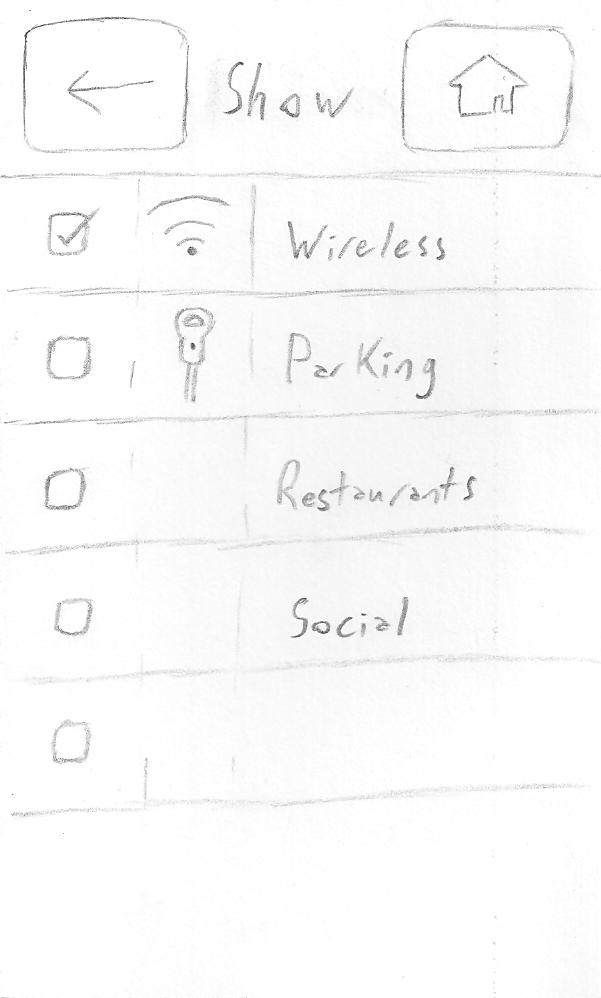 Show
Wireless
Parking
Restaurants
Social